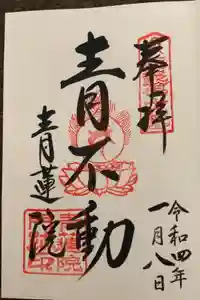 奉拝
令和四年
一月八日
青不動
青蓮院